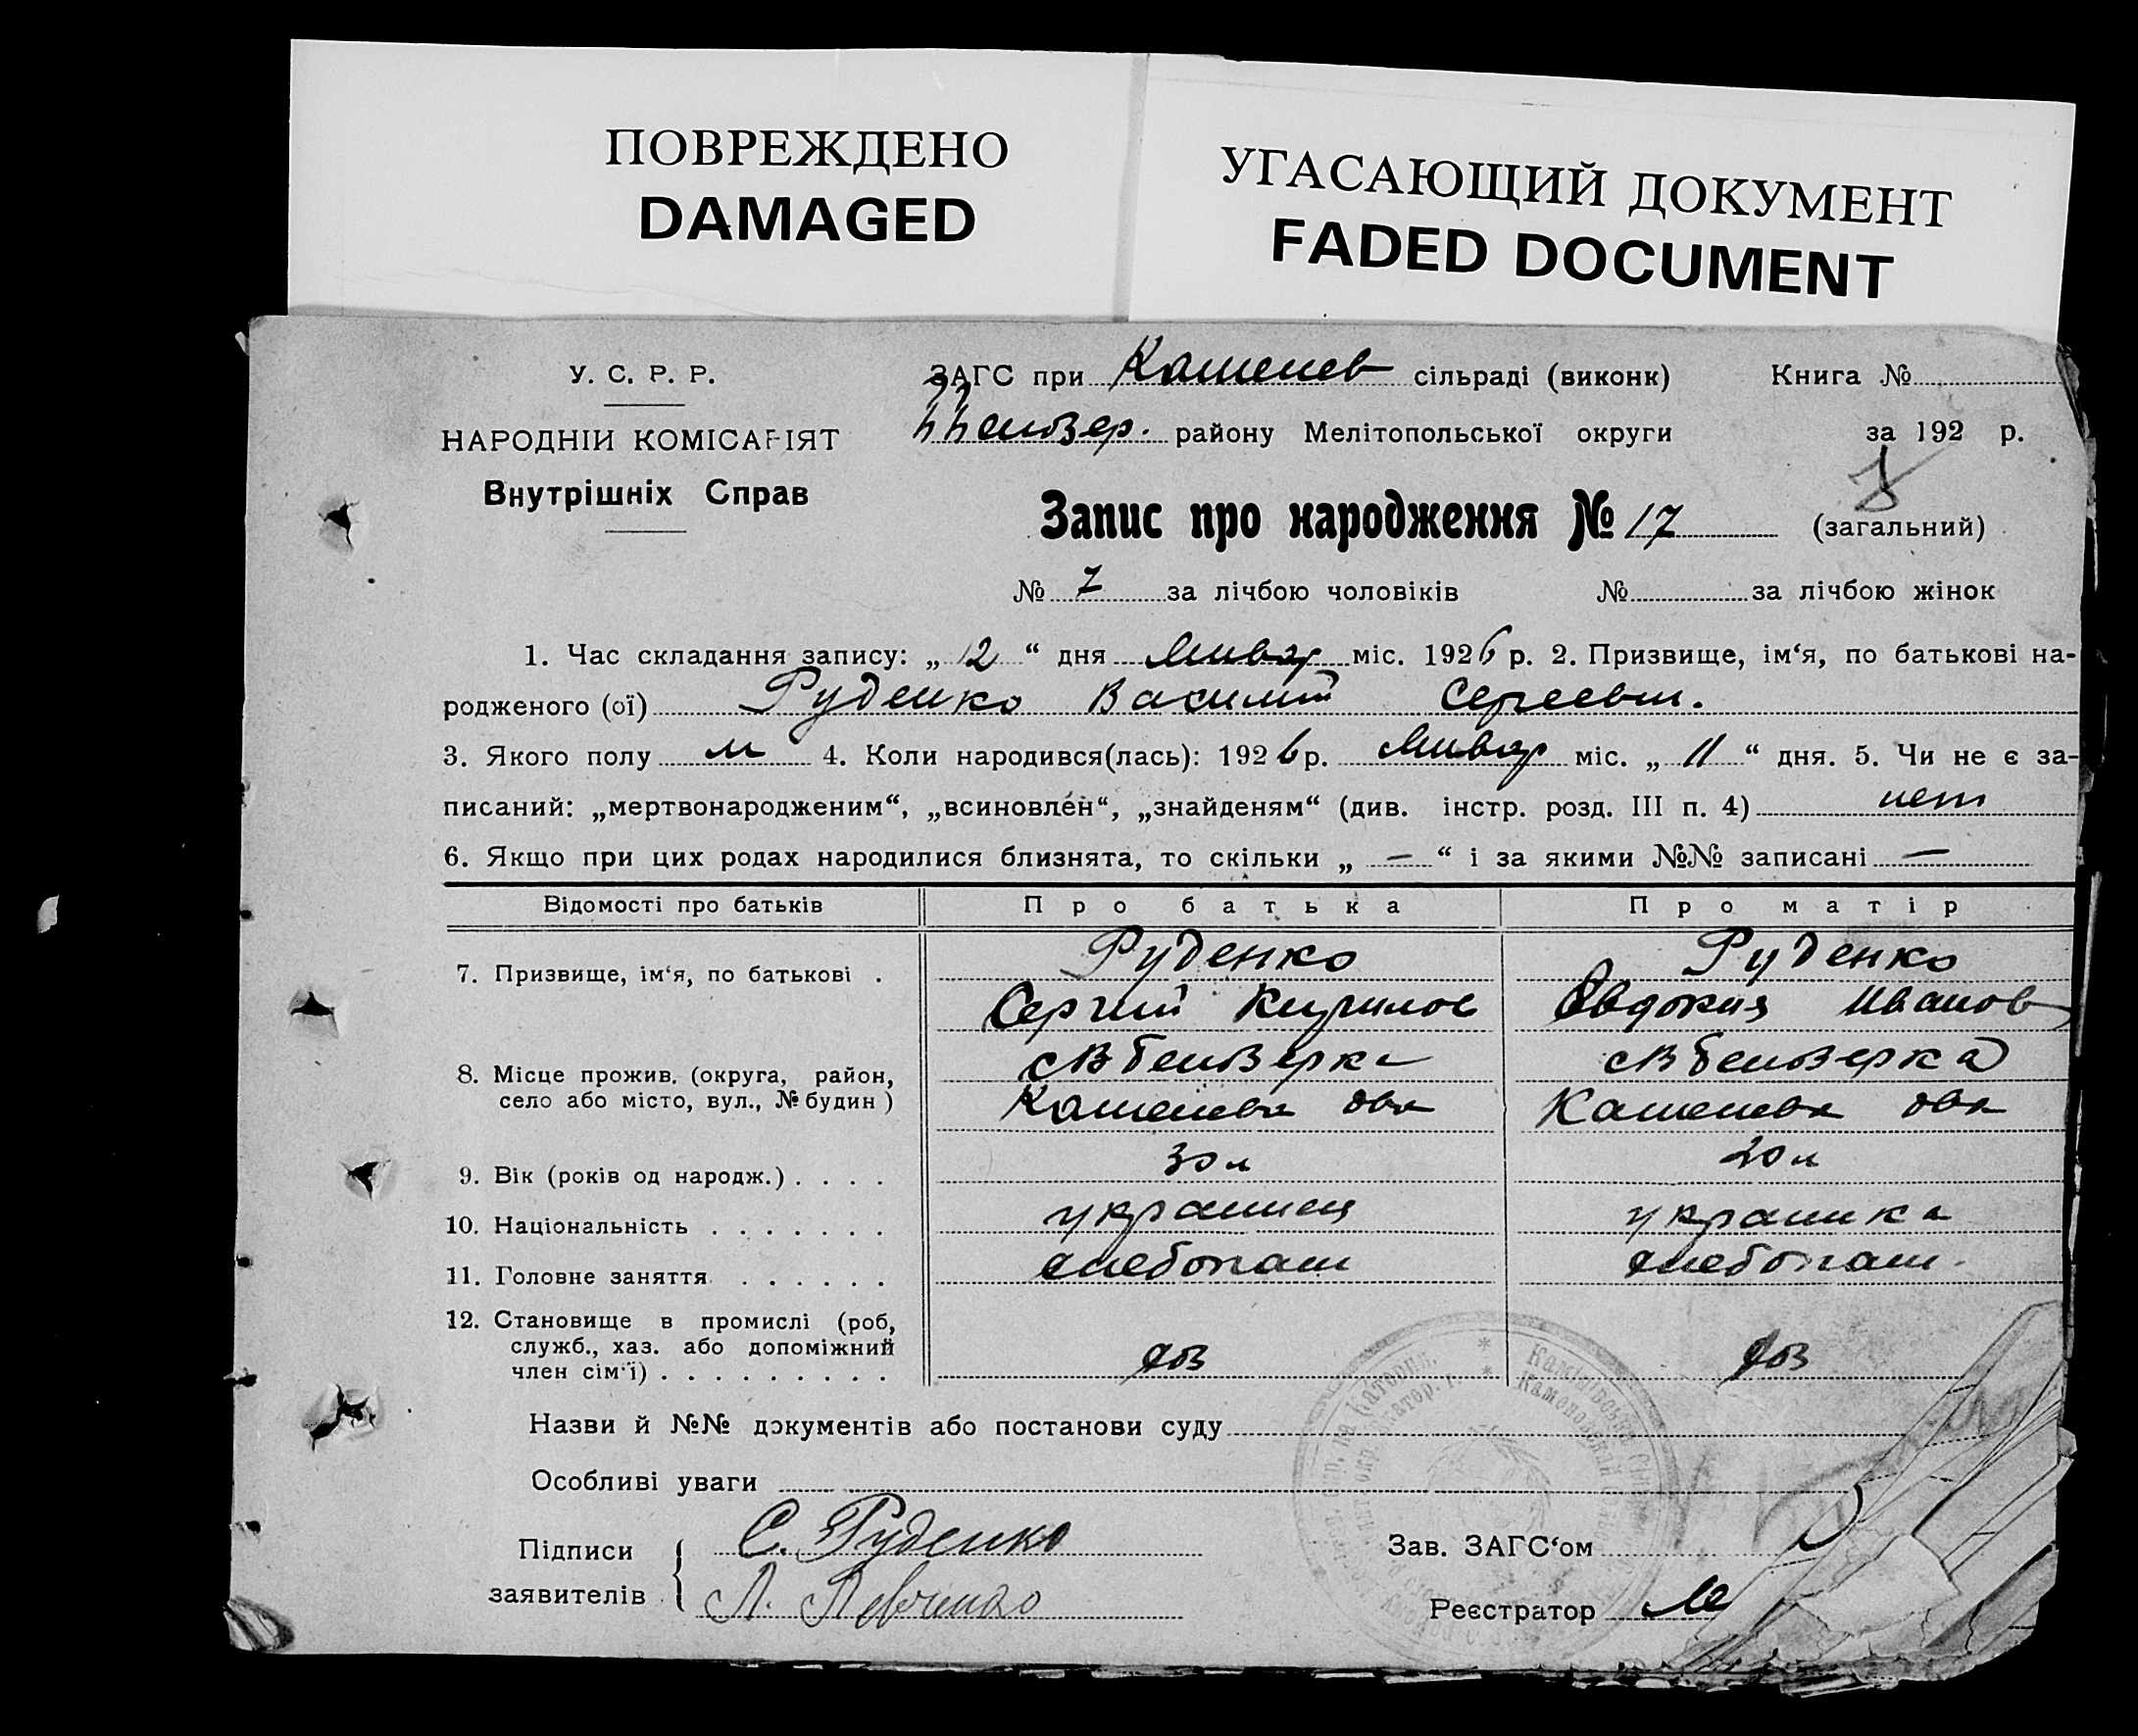 ПОВРЕЖДЕНО
DAMAGED
УГАСАЮЩИЙ ДОКУМЕНТ
FADED DOCUMENT
У. С. Р. Р.
НАРОДНІЙ КОМІСАРІЯТ
Внутрішніх Справ
ЗАГС при Каменев сільраді (виконк)
району Мелітопольської округи
Книга №
за 192 р.
Запис про народження № 17 (загальний)
№ 7 за лічбою чоловіків № за лічбою жінок
1. Час складання запису: „ 12 “ дня Январ міс. 1926 р. 2. Призвище, ім‘я, по батькові на-
родженого (ої) Руденко Василий Сергеевич.
3. Якого полу м 4. Коли народився(лась): 1926 р. Январ міс. „ 11 “ дня. 5. Чи не є за-
писаний: „мертвонародженим“, „всиновлен“, „знайденям“ (див. інстр. розд. III п. 4) нет
6. Якщо при цих родах народилися близнята, то скільки „ — “ і за якими №№ записані —
Відомості про батьків Про батька Про матір
7. Призвище, ім‘я, по батькові . Руденко Руденко
Сергий Кирилов Евдокия Иванов
8. Місце прожив. (округа, район,
село або місто, вул., № будин)
Каменева Каменева
9. Вік (років од народж.) . . . . 30 л 20 л
10. Національність . . . . . . . украинец украинка
11. Головне заняття . . . . . . хлебопаш хлебопаш.
12. Становище в промислі (роб,
служб., хаз. або допоміжний
член сім‘ї) . . . . . . . . . хоз хоз
Назви й №№ документів або постанови суду
Особливі уваги
Підписи
заявителів
С. Руденко
Л. Левченко
Зав. ЗАГС‘ом
Реєстратор